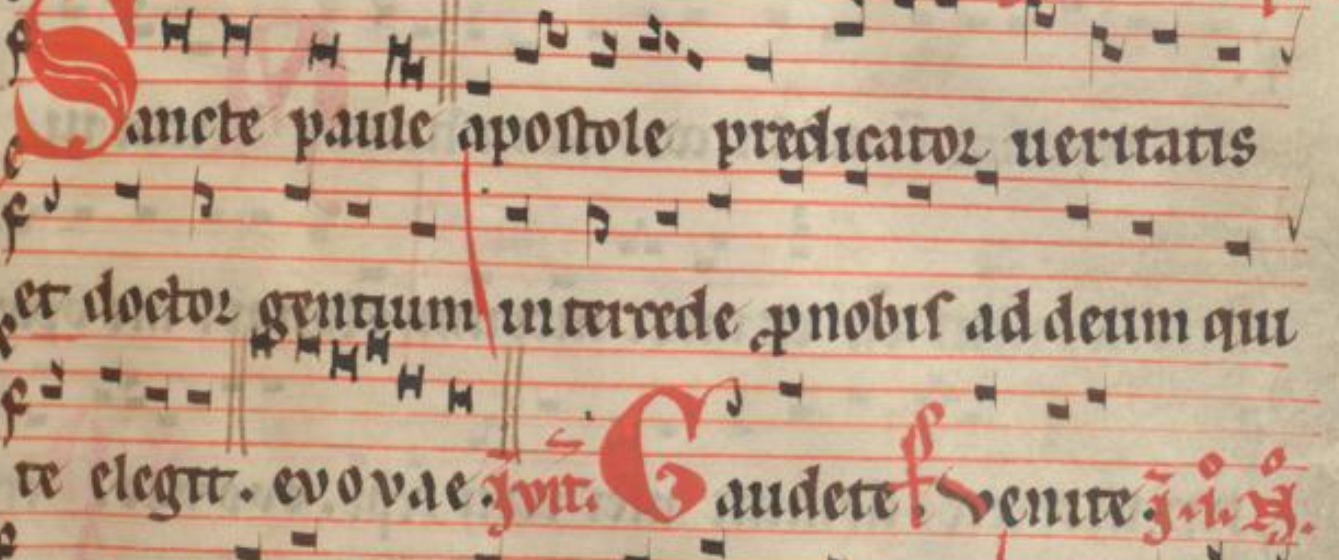 Sancte paule apostole predicator ueritatis
et doctor gentium intercede ꝓnobis ad deum qui
te elegit. evovae. Jvit̄. Gaudete. p̄s Venite. j̄. i°. N°.